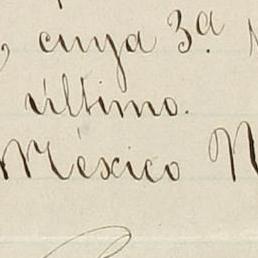 cuya 3.ª
último.
México N